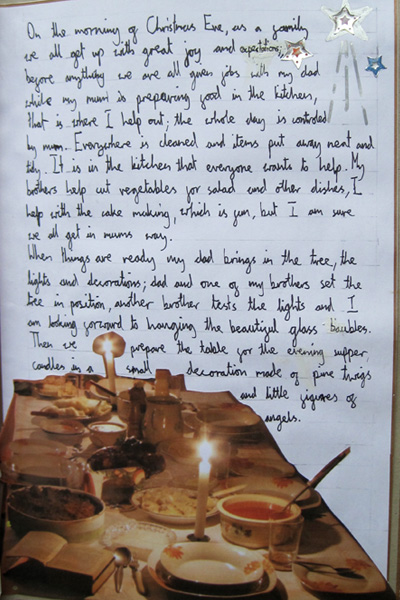 On the morning of Christmas Eve, as a family
we all get up with great joy and expectations,
before anything we are all given jobs with my dad
while my mum is preparing food in the kitchen,
that is where I help out; the whole day is controled
by mum. Everywhere is cleaned and items put away neat and
tidy. It is in the kitchen that everyone wants to help. My
brothers help cut vegetables for salad and other dishes, I
help with the cake making, which is fun, but I am sure
we all get in mums way.
When things are ready my dad brings in the tree, the
lights and decorations; dad and one of my brothers set the
tree in position, another brother tests the lights and I
am looking forward to hanging the beautiful glass baubles.
Then we prepare the table for the evening supper,
candles in a small decoration made of pine twigs
and little figures of
angels.